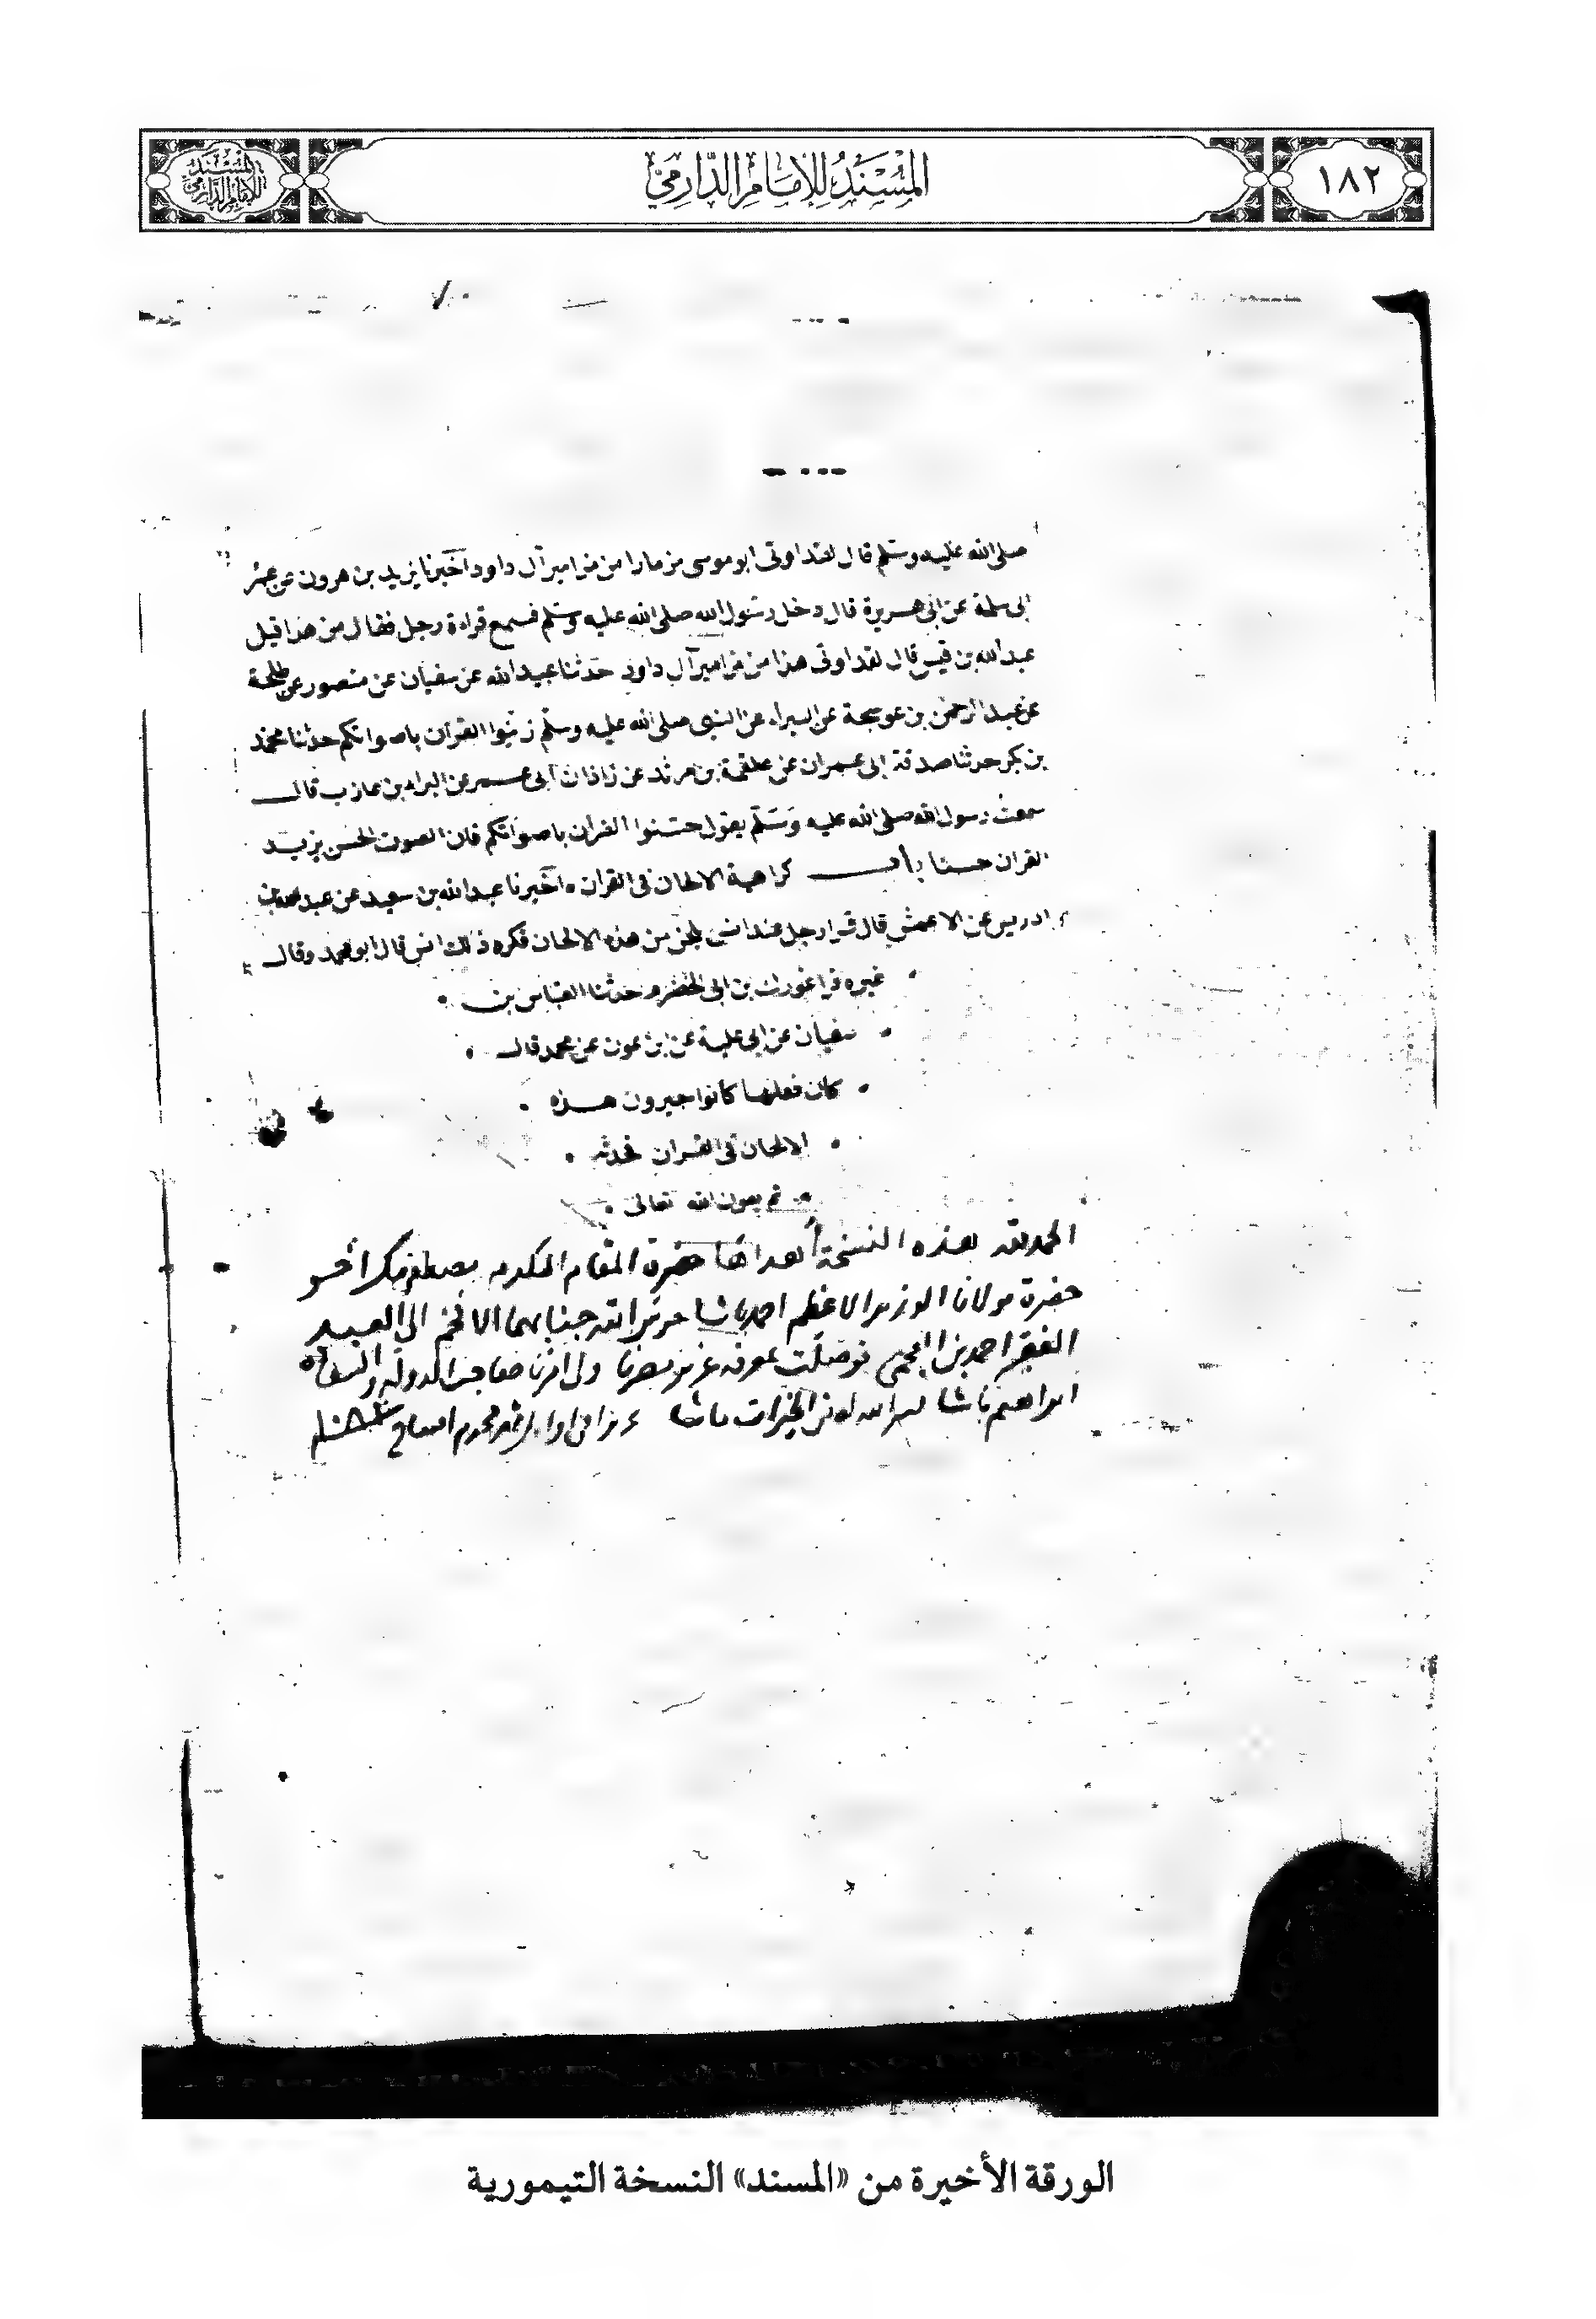 ١٨٢
المسند للإمام الدارمي
المسند للإمام الدارمي
صلى الله عليه وسلم قال لقد اوتى ابو موسى مزمارا من مزامير آل داود اخبرنا يزيد بن هرون عن محمد
ابى سلمة عن ابى هريرة قال دخل رسول الله صلى الله عليه وسلم فسمع قراءة رجل فقال من هذا قيل
عبد الله بن قيس قال لقد اوتى هذا من مزامير آل داود حدثنا عبيد الله عن سفيان عن منصور عن طلحة
عن عبد الرحمن بن عوسجة عن البراء عن النبى صلى الله عليه وسلم زينوا القرآن باصواتكم حدثنا محمد
بن بكر حدثنا صدقة ابى عمران عن علقمة بن مرثد عن زاذان ابى عمر عن البراء بن عازب قال
سمعت رسول الله صلى الله عليه وسلم يقول حسنوا القران باصواتكم فان الصوت الحسن يزيد
القران حسنا باب كراهية الالحان فى القران اخبرنا عبد الله بن سعيد عن عبد الله بن
ادريس عن الاعمش قال قرا رجل عند انس بلحن من هذه الالحان فكره ذلك انس قال ابو محمد وقال
غيره قرا غورك بن ابى الخضرم حدثنا العباس بن
سفيان عن ابى علية عن ابن عون عن محمد قال
كانوا يرون هذه
الالحان فى القران محدثة
تم بعون الله تعالى
الحمد لله هذه النسخة أهداها حضرة المقام المكرم مصطفى بك أخو
حضرة مولانا الوزير الاعظم احمد باشا حرس الله جنابهما الافخم الى العبد
الفقير احمد بن العجمى
ابراهيم باشا
الورقة الأخيرة من «المسند» النسخة التيمورية